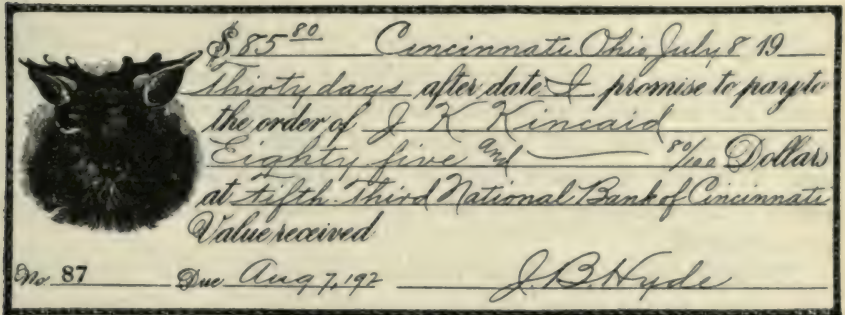 $85 80 Cincinnati, Ohio, July 8 19
Thirty days after date I promise to pay to
the order of J K Kincaid
Eighty five and 80/100 Dollars
at Fifth-Third National Bank of Cincinnati
Value received
No 87 Due Aug 7, 192 J. B. Hyde